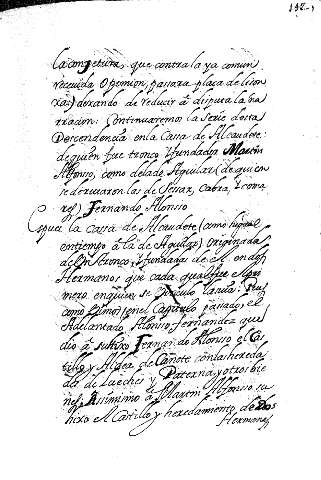 132
la conjetura, que contra la ya comun
recevida Opinion, passara plaza de lison
xa; dexando de reducir à disputa la na
rracion: Continuaremos la serie desta
Descendencia en la Cassa de Alcaudete:
de quien fue tronco, y fundador Martin
Alfonso, como de la de Aguilar (de quien
se derivaron las de Cabra, y
Fernando Alonso
Es pues la cassa de Alcaudete (como
en tiempo à la de Aguilar) originada
de Un tronco, y fundada de
Hermanos; que cada qual fue el pri
mero en quien se la una: Pues
como en el Capitulo passado, el
Adelantado Alonso Fernandez que
dio à su hixo Fernando Alonso el Cas
tillo, y Aldea de Cañete con las hereda
des de Lueches y Paterna, y otros bie
nes, Assimismo à Martin Alfonso su
hixo el Castillo y heredamiento de Dos
Hermanas